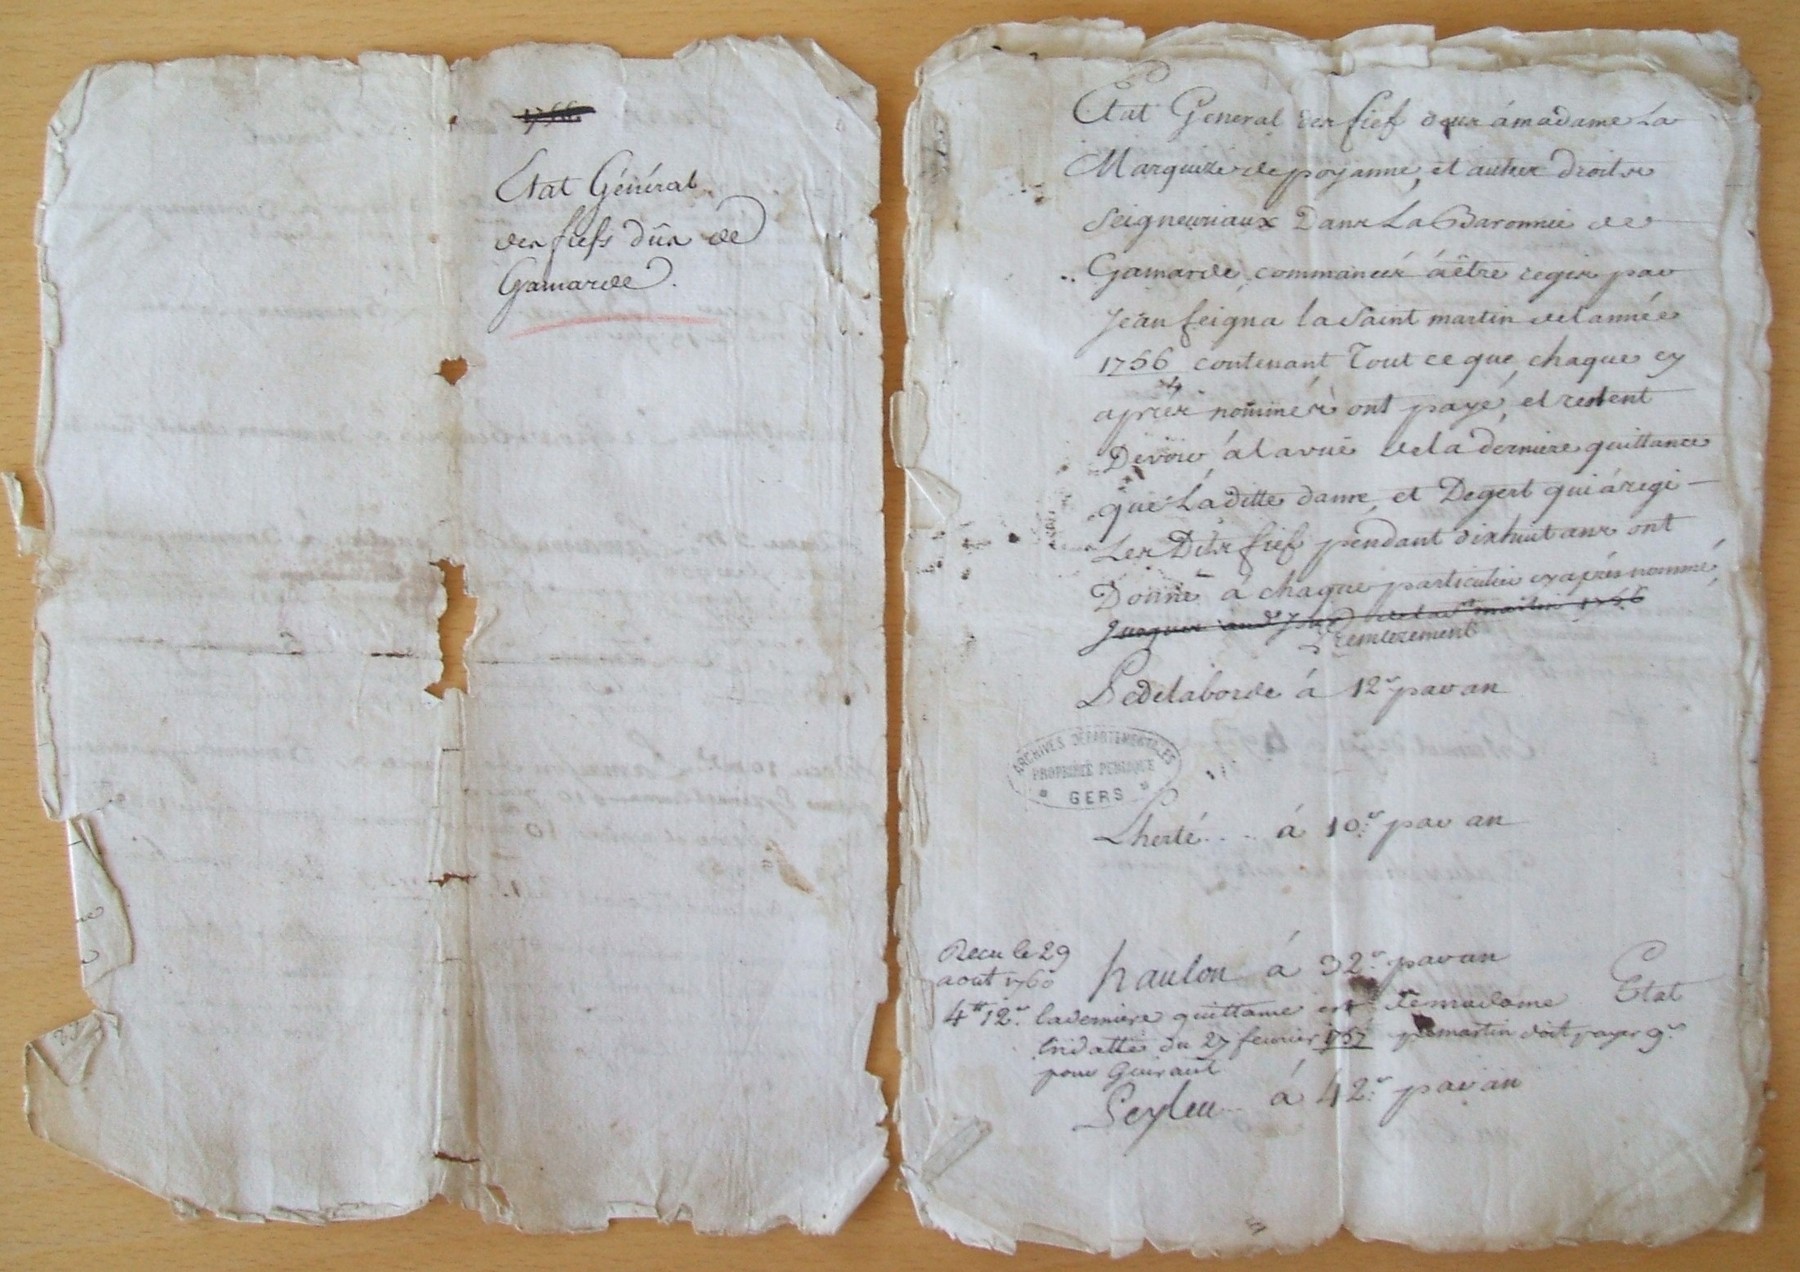 1756
Etat Général
des fiefs dûs de
Gamarde.
Etat General des fief deus á madame La
Marquize de poyanne, et autres droits
Seigneuriaux Dans La Baronnie de
Gamarde, commancés á être regis par
Jean feigna la Saint martin de l année
1756 contenant Tout ce que chaque cy
aprés nommés ont payé, et restent
Devoir á la vuë de la derniere quittance
que La ditte dame, et Degert qui á regi
Les Dits fief pendant dixhuit ans ont
Donné á chaque particulier cy aprés nommé,
de la st martin 1756
Pedelaborde á 12s par an
ARCHIVES DÉPARTEMENTALES
PROPRIÉTÉ PUBLIQUE
GERS
Lherté... á 10s par an
Recu le 29
aout 1760
4tt 12s
haulon á 32s par an
la derniere quittame est de madame Etat
en datte du 27 fevrier 1757 martin doit payer 9s
pour Guiraut
Peyleu... á 42s par an